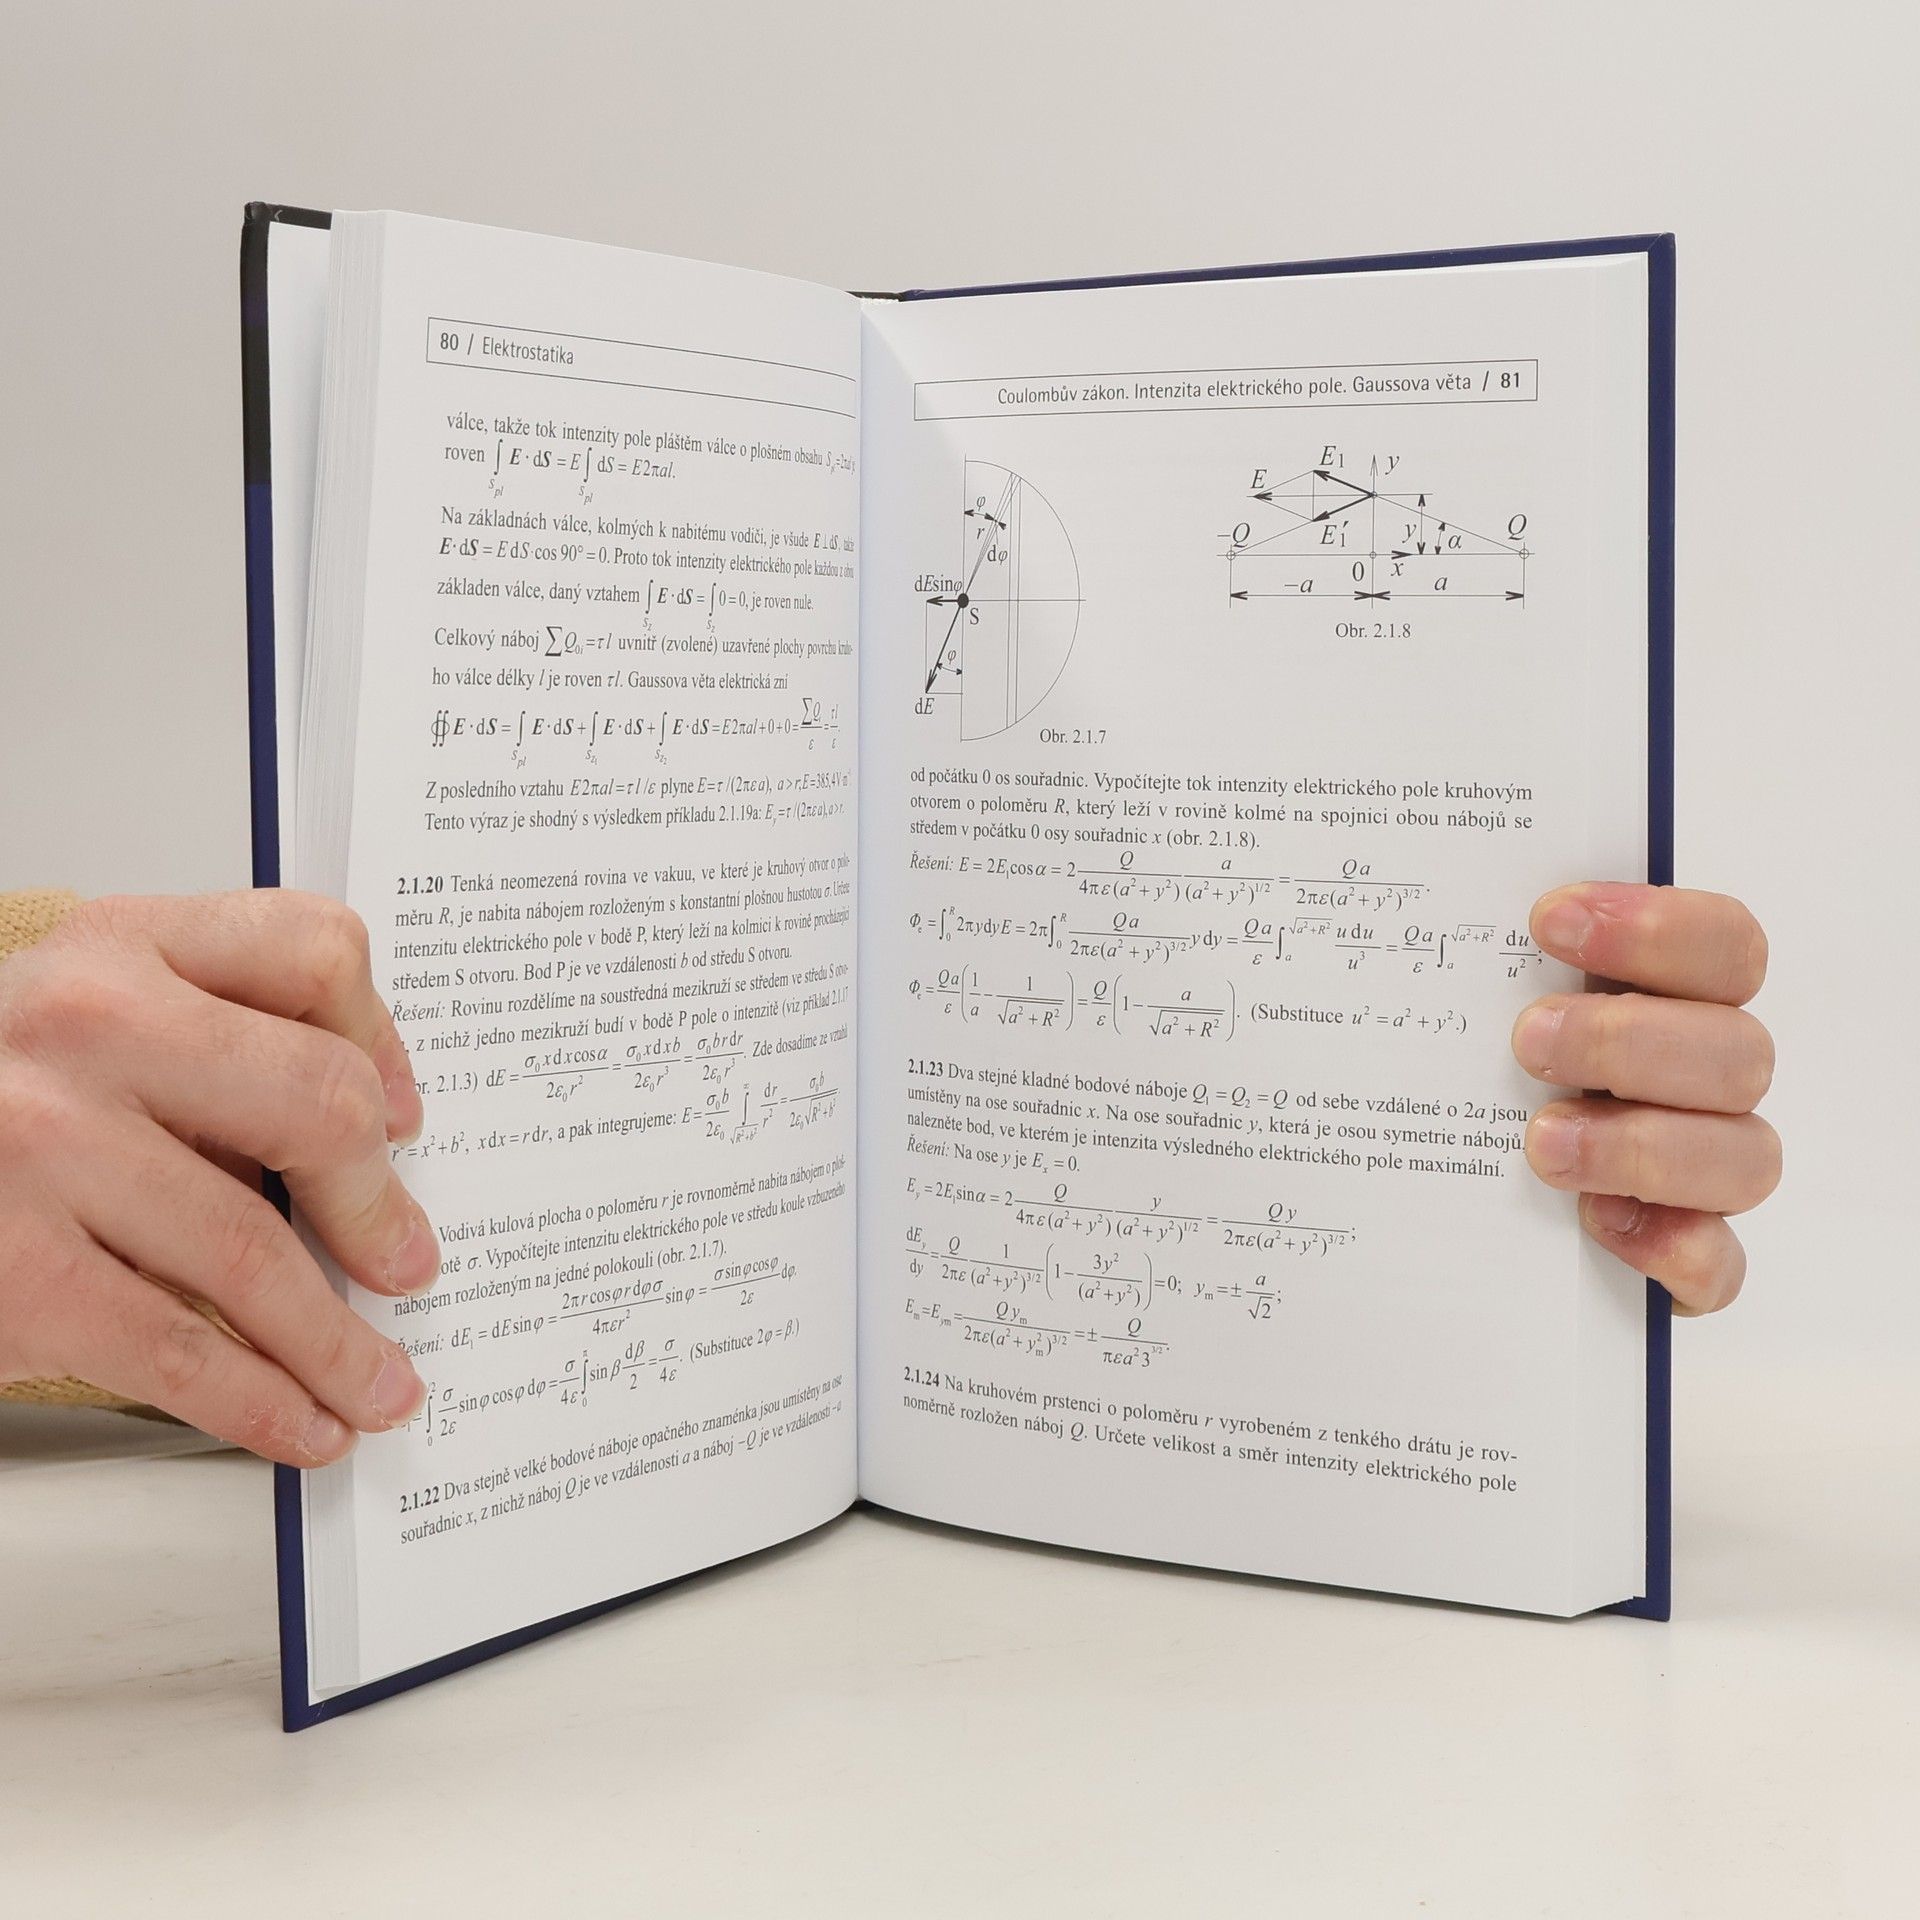 80 / Elektrostatika
válce, takže tok intenzity pole pláštěm válce o plošném obsahu S_pl=2πal,
roven ∫_{S_pl} E · dS = E ∫_{S_pl} dS = E2πal.
Na základnách válce, kolmých k nabitému vodiči, je všude E ⊥ dS, takže
E · dS = E dS · cos 90° = 0. Proto tok intenzity elektrického pole každou z obou
základen válce, daný vztahem ∫_{S_z} E · dS = ∫_{S_z} 0 = 0, je roven nule.
Celkový náboj ∑Q_{0i} = τl uvnitř (zvolené) uzavřené plochy povrchu kruho-
ho válce délky l je roven τl. Gaussova věta elektrická zní
∯ E · dS = ∫_{S_pl} E · dS + ∫_{S_z1} E · dS + ∫_{S_z2} E · dS = E2πal + 0 + 0 = ∑Q_i/ε = τl/ε.
Z posledního vztahu E2πal = τl/ε plyne E = τ/(2πεa), a > r, E = 385,4 V m⁻¹.
Tento výraz je shodný s výsledkem příkladu 2.1.19a: E_y = τ/(2πεa), a > r.
2.1.20 Tenká neomezená rovina ve vakuu, ve které je kruhový otvor o polo-
měru R, je nabita nábojem rozloženým s konstantní plošnou hustotou σ. Určete
intenzitu elektrického pole v bodě P, který leží na kolmici k rovině procházející
středem S otvoru. Bod P je ve vzdálenosti b od středu S otvoru.
Řešení: Rovinu rozdělíme na soustředná mezikruží se středem ve středu S otvo-
, z nichž jedno mezikruží budí v bodě P pole o intenzitě (viz příklad 2.1.17
br. 2.1.3) dE = σ₀xdxcosα/(2ε₀r²) = σ₀xdxb/(2ε₀r³) = σ₀brdr/(2ε₀r³). Zde dosadíme ze vztahů
r² = x² + b², xdx = rdr, a pak integrujeme: E = σ₀b/(2ε₀) ∫_{√(R²+b²)}^{∞} dr/r² = σ₀b/(2ε₀√(R²+b²))
Vodivá kulová plocha o poloměru r je rovnoměrně nabita nábojem o ploš-
otě σ. Vypočítejte intenzitu elektrického pole ve středu koule vzbuzeného
nábojem rozloženým na jedné polokouli (obr. 2.1.7).
Řešení: dE₁ = dE sinφ = 2πr cosφ r dφ σ/(4πεr²) sinφ = σ sinφ cosφ/(2ε) dφ.
= ∫_0^{/2} σ/(2ε) sinφ cosφ dφ = σ/(4ε) ∫_0^π sinβ dβ/2 = σ/(4ε). (Substituce 2φ = β.)
2.1.22 Dva stejně velké bodové náboje opačného znaménka jsou umístěny na ose
souřadnic x, z nichž náboj Q je ve vzdálenosti a a náboj –Q je ve vzdálenosti –a
Coulombův zákon. Intenzita elektrického pole. Gaussova věta / 81
φ
r
dφ
dEsinφ
S
φ
dE
Obr. 2.1.7
E₁
y
E
–Q
E₁′
y
α
Q
0
x
–a
a
Obr. 2.1.8
od počátku 0 os souřadnic. Vypočítejte tok intenzity elektrického pole kruhovým
otvorem o poloměru R, který leží v rovině kolmé na spojnici obou nábojů se
středem v počátku 0 osy souřadnic x (obr. 2.1.8).
Řešení: E = 2E₁cosα = 2 Q/(4πε(a² + y²)) a/(a² + y²)^{1/2} = Qa/(2πε(a² + y²)^{3/2}).
Φ_e = ∫_0^R 2πydyE = 2π ∫_0^R Qa/(2πε(a² + y²)^{3/2}) y dy = Qa/ε ∫_a^{√(a²+R²)} u du/u³ = Qa/ε ∫_a^{√(a²+R²)} du/u²;
Φ_e = Qa/ε (1/a – 1/√(a² + R²)) = Q/ε (1 – a/√(a² + R²)). (Substituce u² = a² + y².)
2.1.23 Dva stejné kladné bodové náboje Q₁ = Q₂ = Q od sebe vzdálené o 2a jsou
umístěny na ose souřadnic x. Na ose souřadnic y, která je osou symetrie nábojů,
nalezněte bod, ve kterém je intenzita výsledného elektrického pole maximální.
Řešení: Na ose y je E_x = 0.
E_y = 2E₁sinα = 2 Q/(4πε(a² + y²)) y/(a² + y²)^{1/2} = Qy/(2πε(a² + y²)^{3/2});
dE_y/dy = Q/(2πε) 1/(a² + y²)^{3/2} (1 – 3y²/(a² + y²)) = 0; y_m = ± a/√2;
E_m = E_ym = Qy_m/(2πε(a² + y_m²)^{3/2}) = ± Q/(πεa²3^{3/2}).
2.1.24 Na kruhovém prstenci o poloměru r vyrobeném z tenkého drátu je rov-
noměrně rozložen náboj Q. Určete velikost a směr intenzity elektrického pole